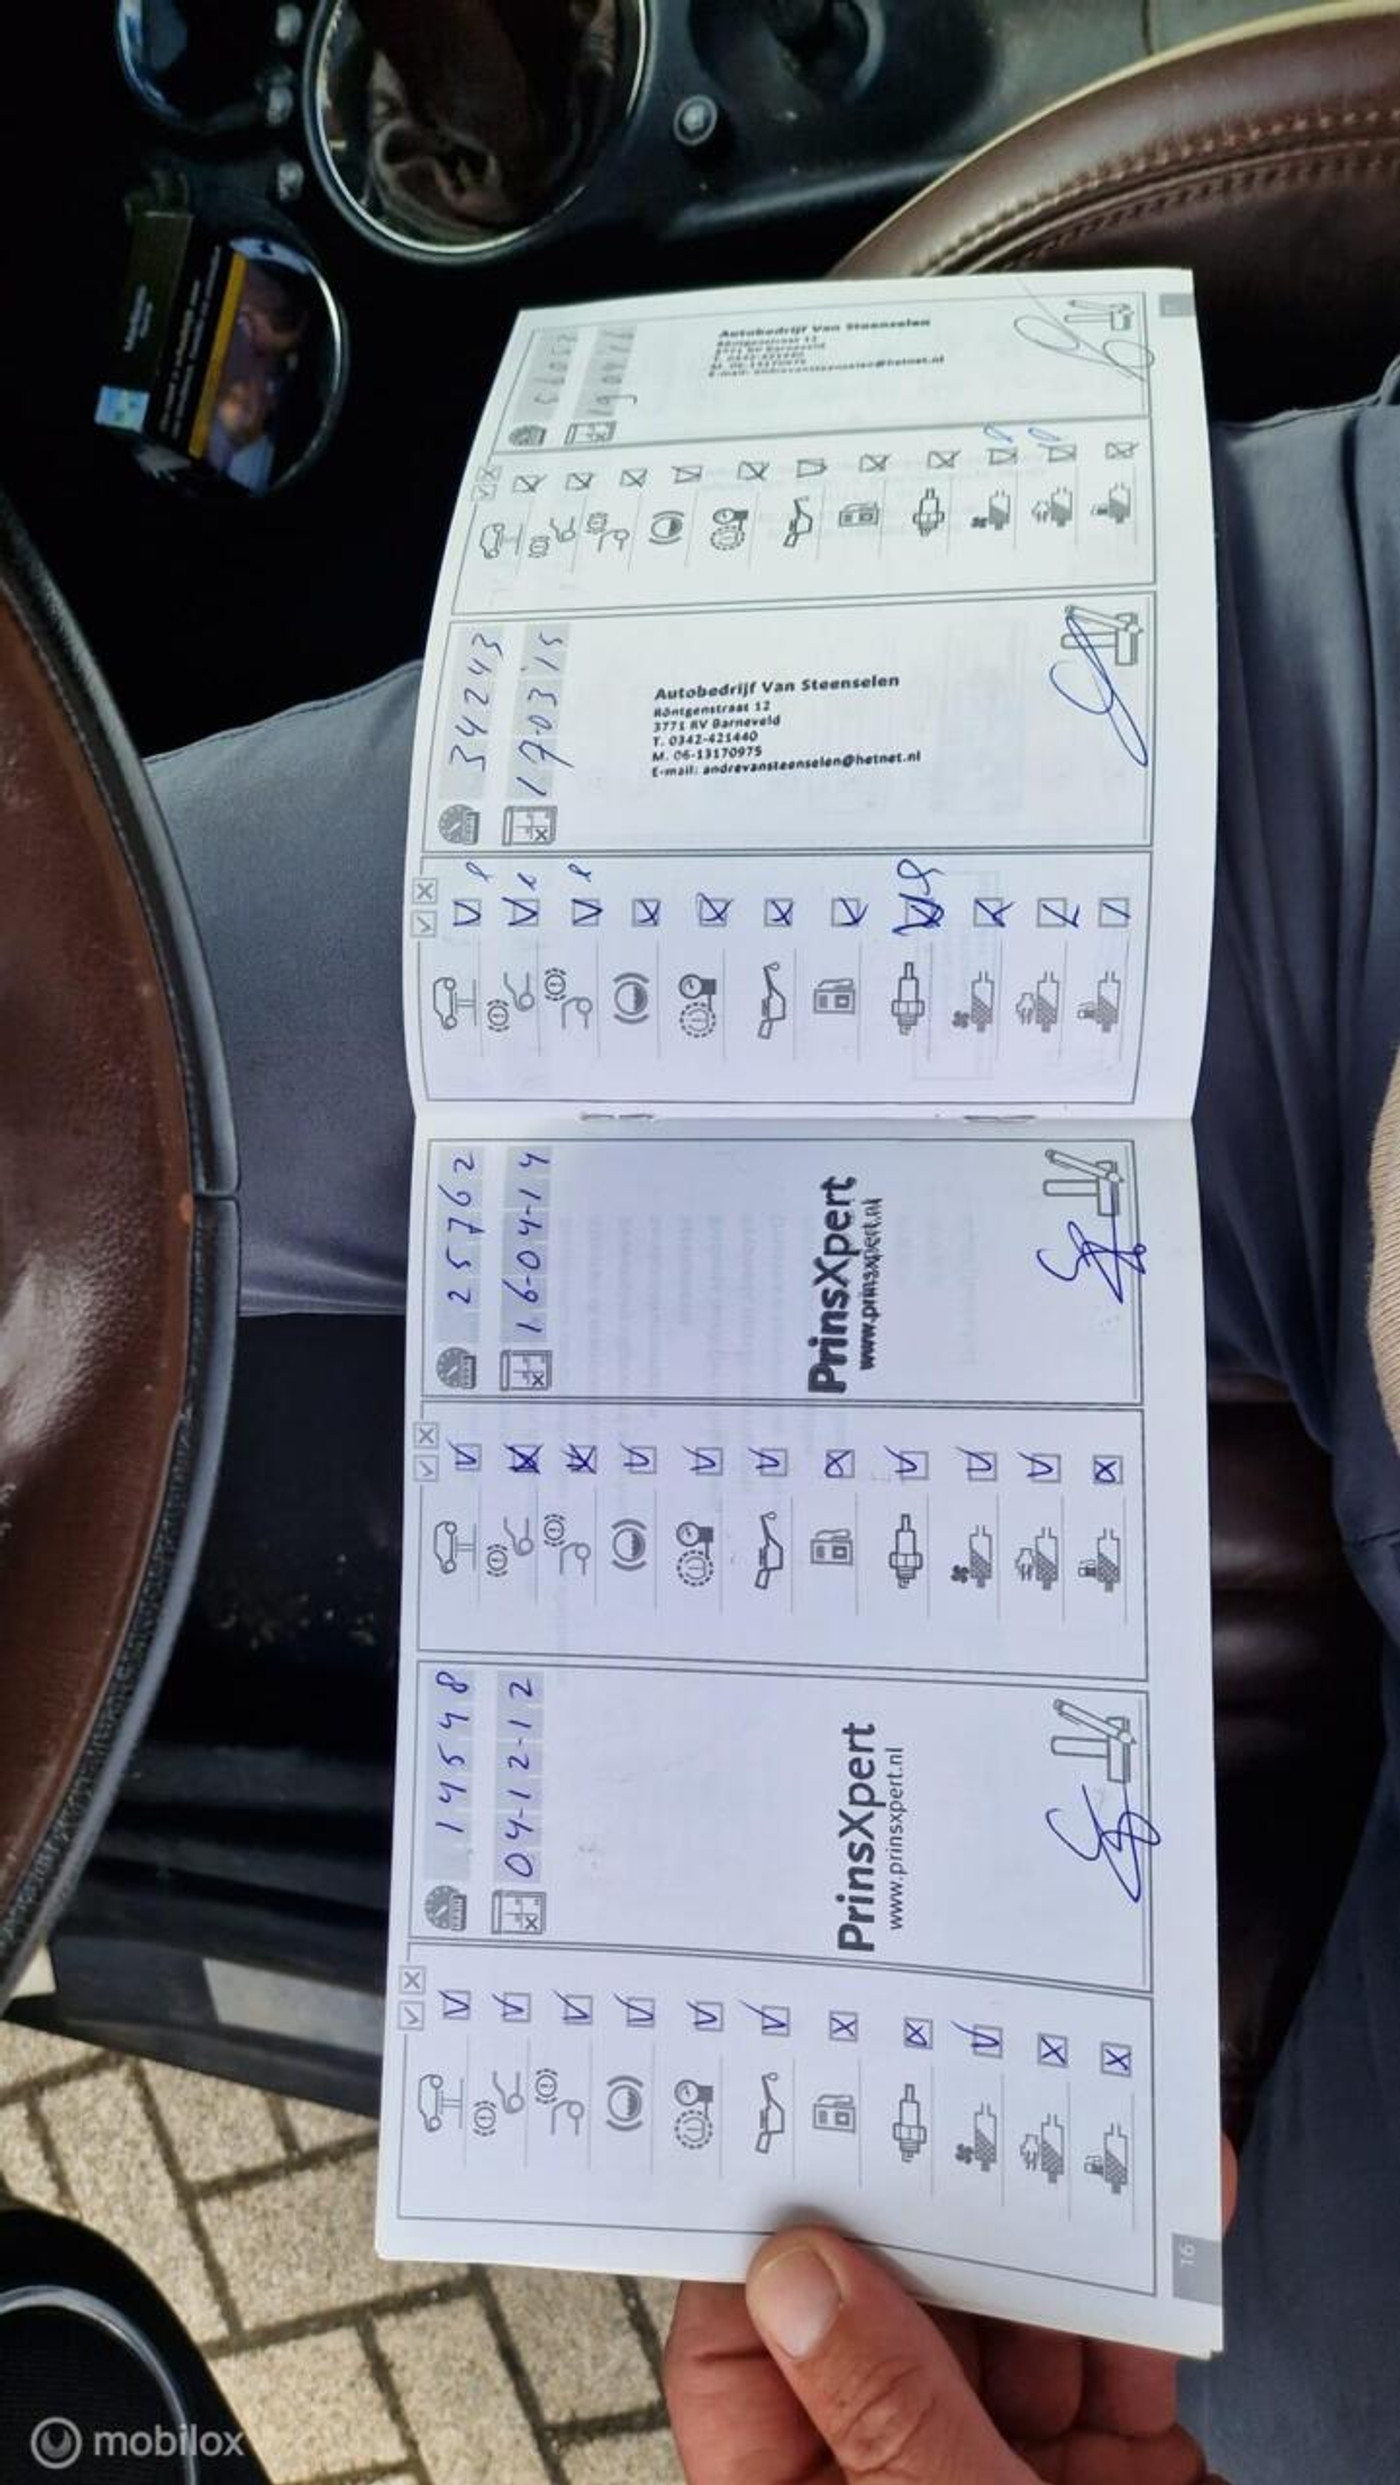 14548
04-12-12
PrinsXpert
www.prinsxpert.nl
16
25762
16-04-14
PrinsXpert
www.prinsxpert.nl
34243
17-03-15
Autobedrijf Van Steenselen
Röntgenstraat 12
3771 RV Barneveld
T. 0342-421440
M. 06-13170975
E-mail: andrevansteenselen@hetnet.nl
Autobedrijf Van Steenselen
Röntgenstraat 12
3771 RV Barneveld
T. 0342-421440
M. 06-13170975
E-mail: andrevansteenselen@hetnet.nl
mobilox